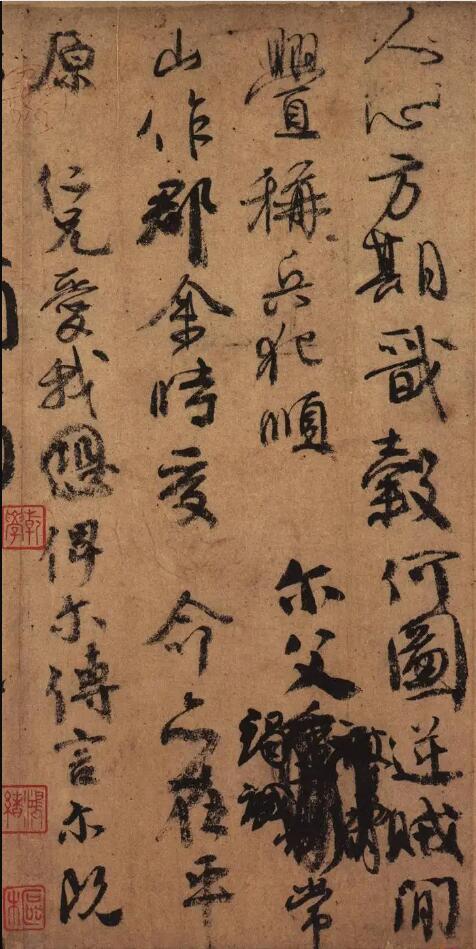 人心方期戩穀何圖逆賊間
舋稱兵犯順 尔父竭誠常
山作郡余時受 命亦在平
原 仁兄愛我恐俾尔傳言尔既
乾學